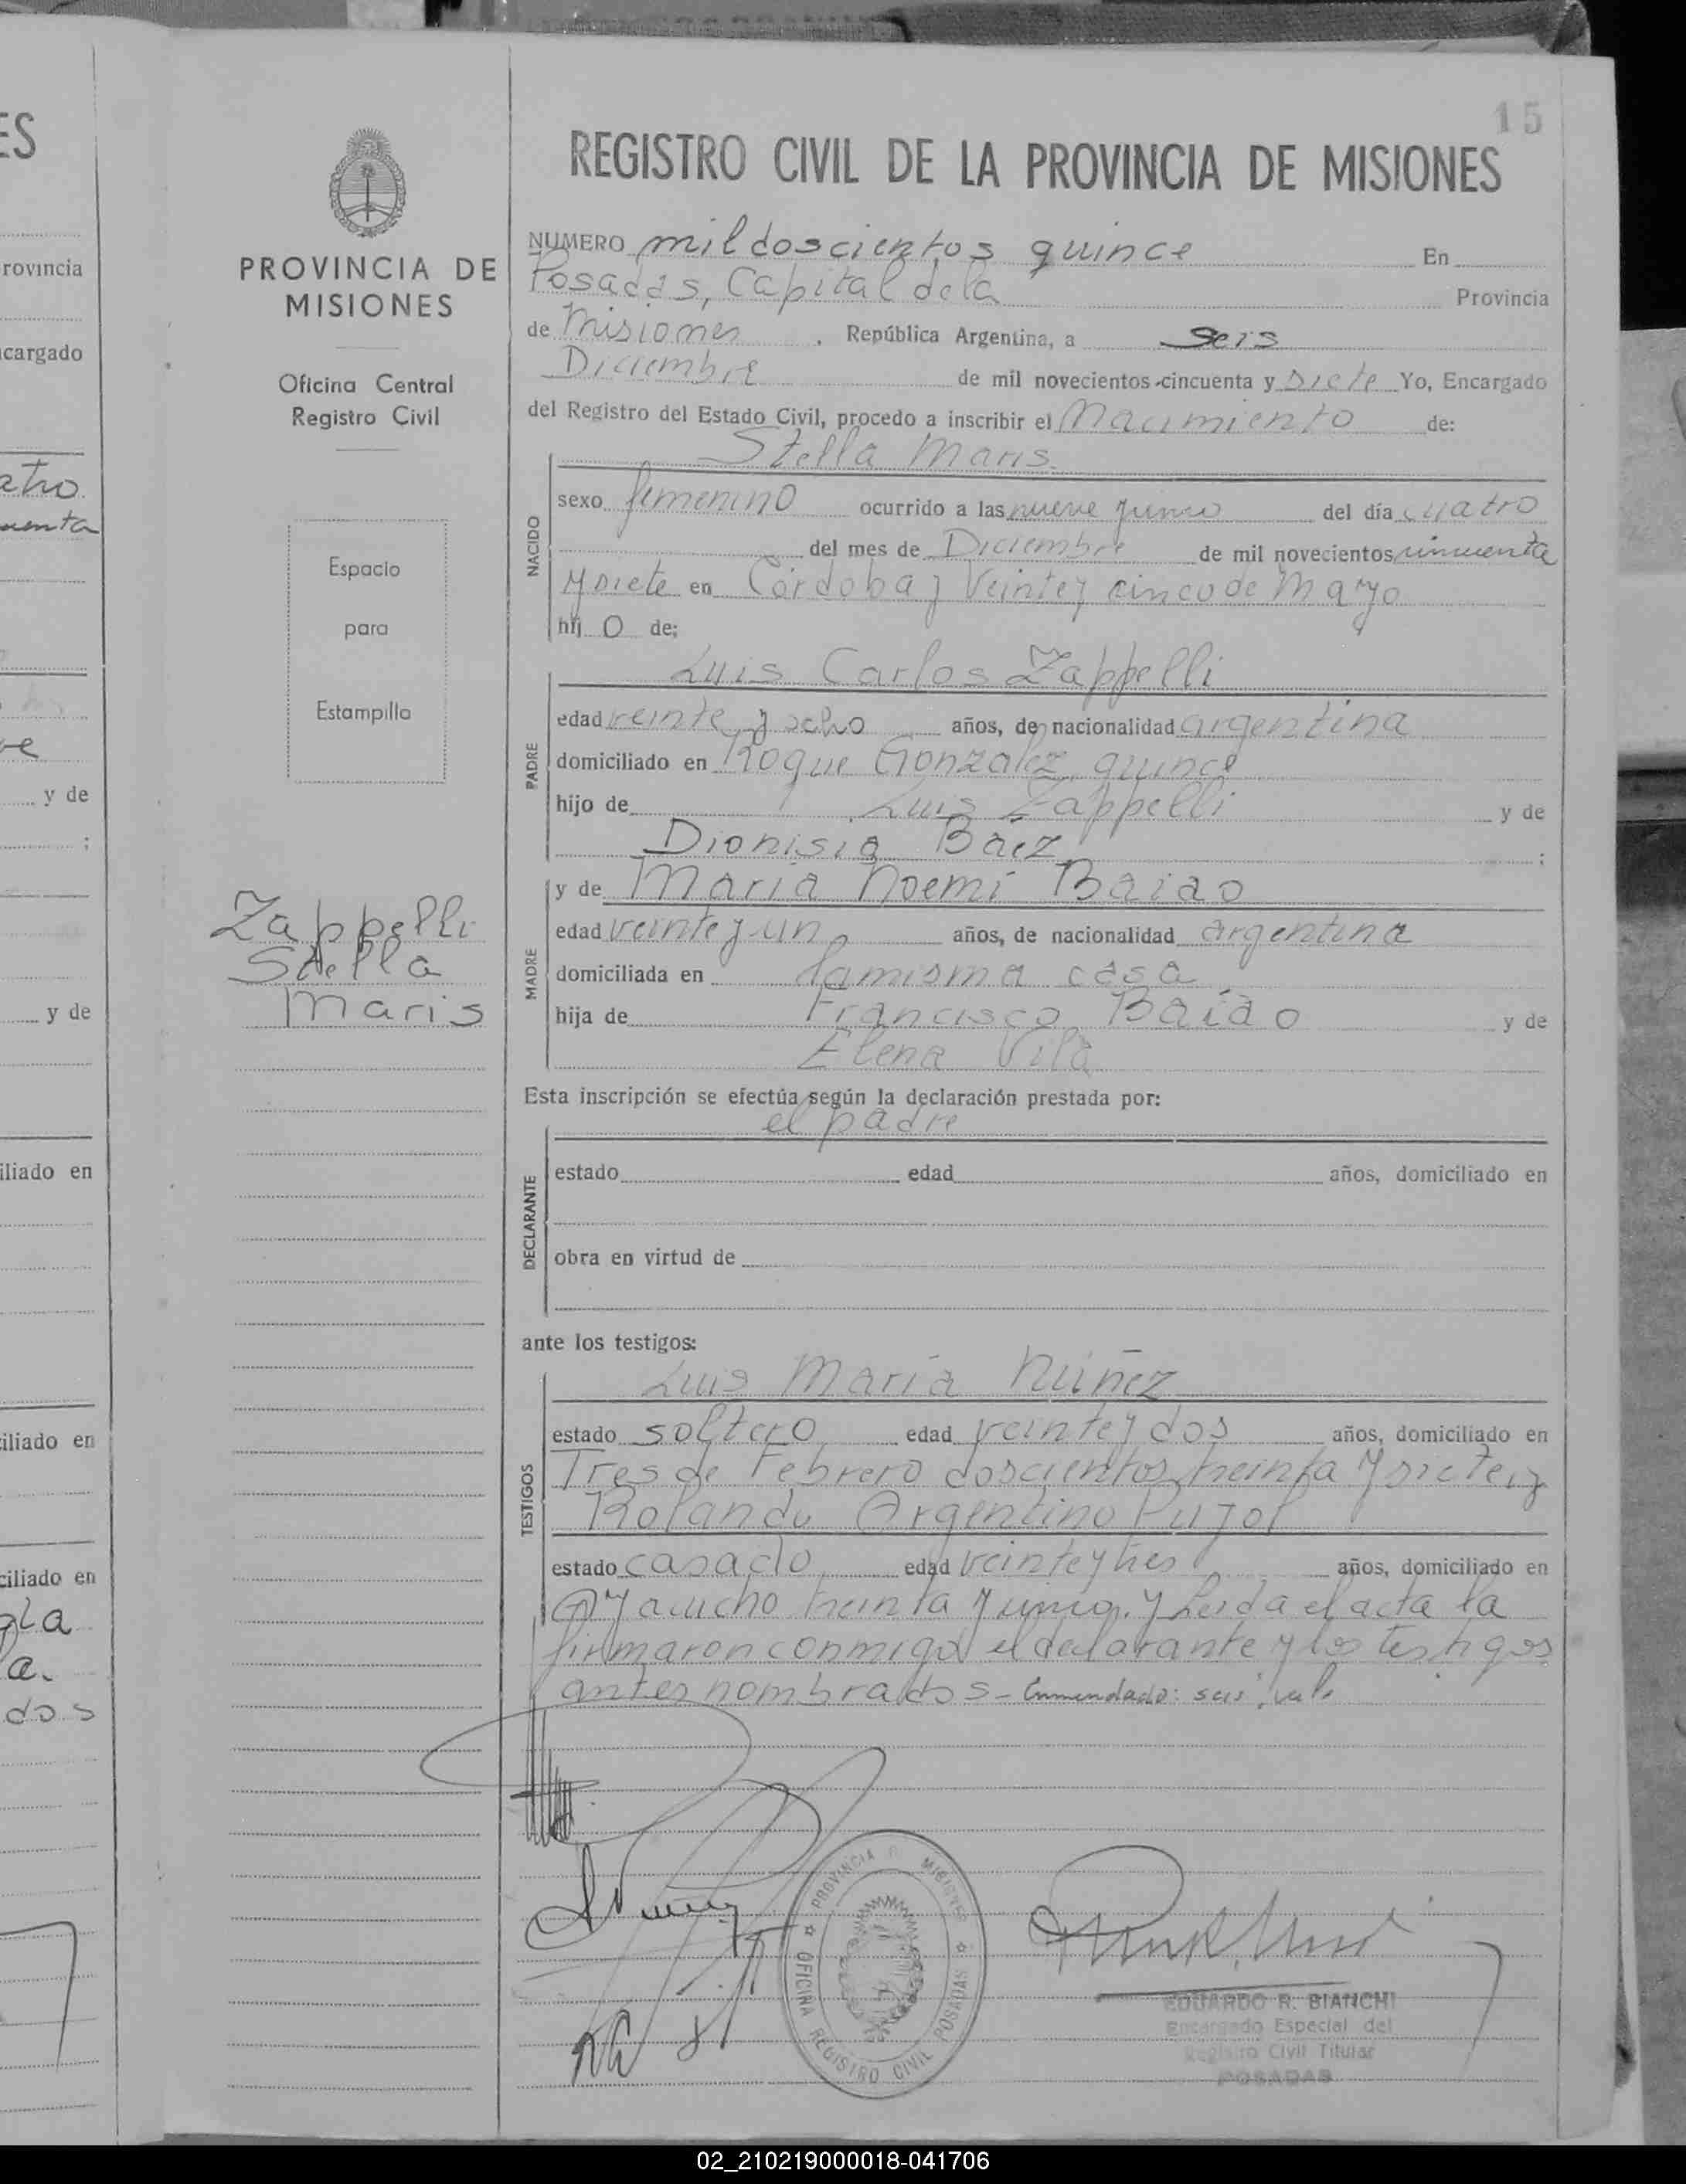 15
REGISTRO CIVIL DE LA PROVINCIA DE MISIONES
PROVINCIA DE
MISIONES
Oficina Central
Registro Civil
Espacio
para
Estampilla
Zappelli
Stella
Maris
NUMERO mil doscientos quince En
Posadas, Capital de la Provincia
de Misiones, República Argentina, a seis
Diciembre de mil novecientos cincuenta y siete Yo, Encargado
del Registro del Estado Civil, procedo a inscribir el Nacimiento de:
Stella Maris
NACIDO
sexo femenino ocurrido a las nueve y del día cuatro
del mes de Diciembre de mil novecientos cincuenta
y siete en Córdoba y Veinte y cinco de Mayo
hij o de;
Luis Carlos Zappelli
PADRE
edad veinte y ocho años, de nacionalidad argentina
domiciliado en Roque Gonzalez quince
hijo de Luis Zappelli y de
Dionisia Báez ;
y de María Noemí Baiao
MADRE
edad veinte y un años, de nacionalidad argentina
domiciliada en la misma casa
hija de Francisco Baiao y de
Elena Vila
Esta inscripción se efectúa según la declaración prestada por:
el padre
DECLARANTE
estado edad años, domiciliado en
obra en virtud de
ante los testigos:
Luis María Núñez
TESTIGOS
estado soltero edad veinte y dos años, domiciliado en
Tres de Febrero doscientos treinta y siete y
Rolando Argentino Pujol
estado casado edad veinte y tres años, domiciliado en
Ayacucho treinta y cinco. y Leida el acta la
firmaron conmigo el declarante y los testigos
antes nombrados - Enmendado: seis, vale
PROVINCIA D MISIONES
OFICINA REGISTRO CIVIL POSADAS
EDUARDO R. BIANCHI
Encargado Especial del
Registro Civil Titular
POSADAS
ES
rovincia
cargado
atro
uenta
y de
;
y de
iliado en
iliado en
ciliado en
gla
a.
dos
02_210219000018-041706